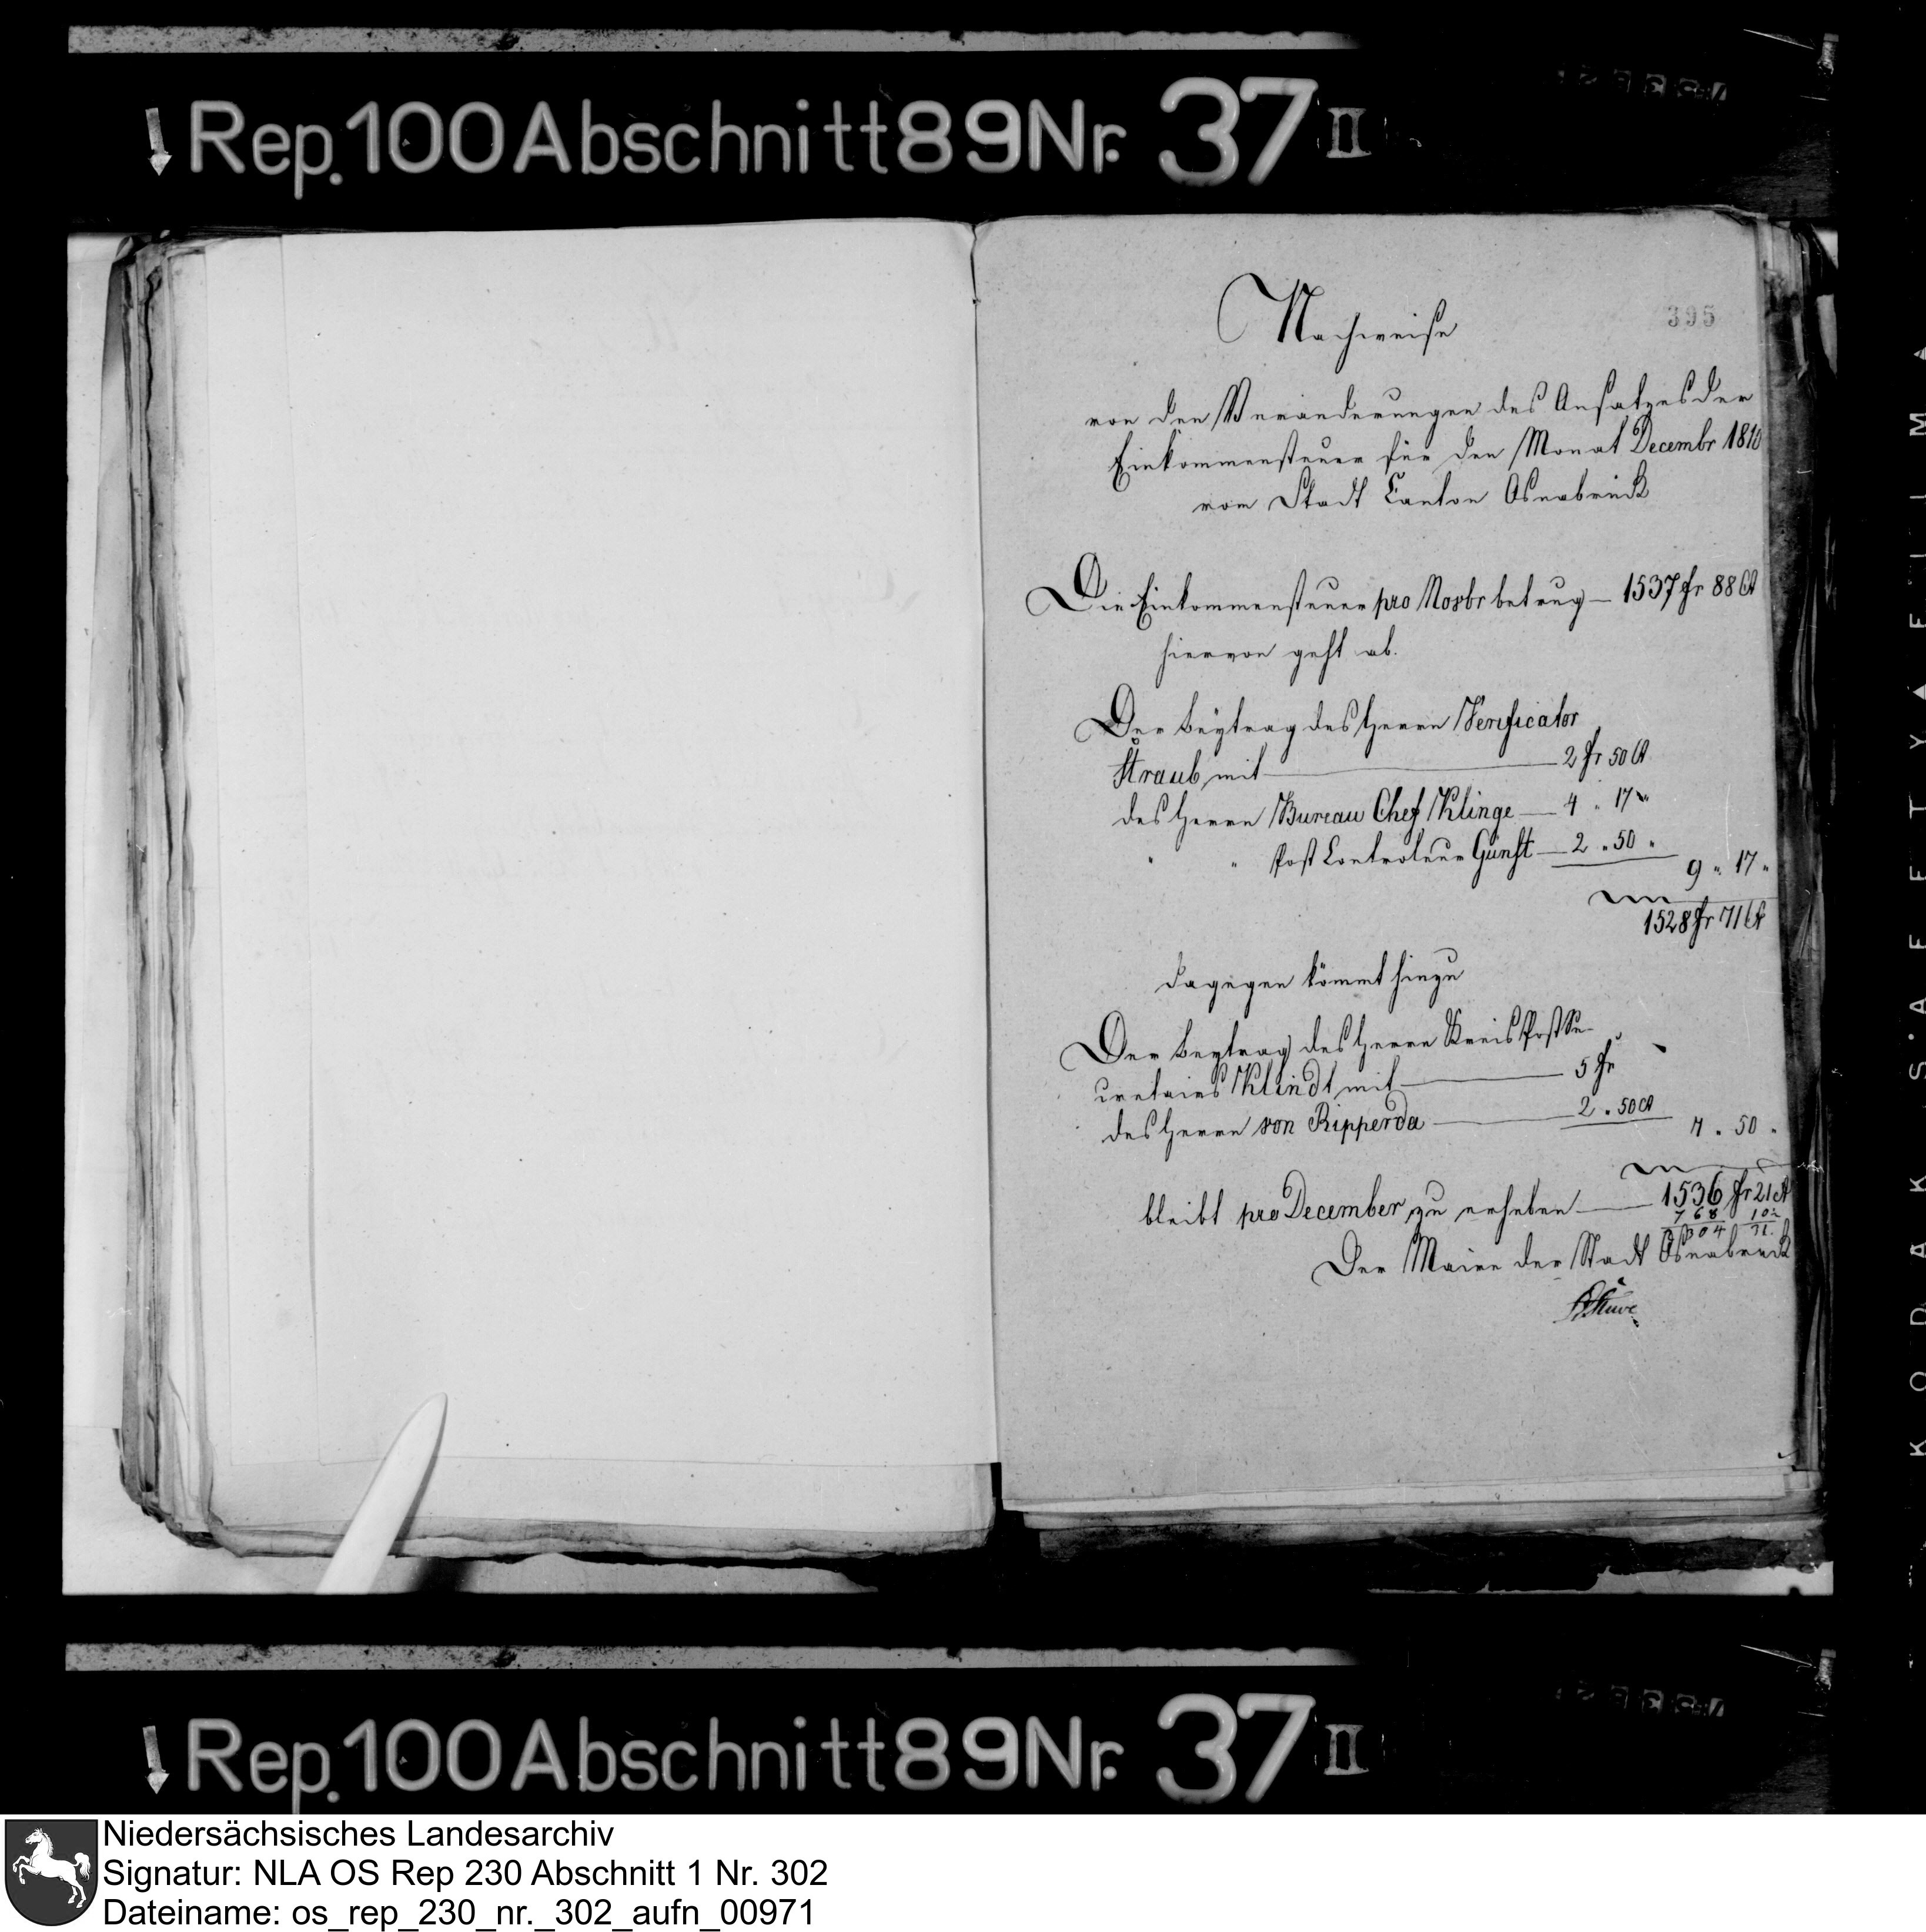 Rep. 100 Abschnitt 89 Nr. 37 II
395
Nachweise
von den Veränderungen des Ansatzes der
Einkommensteuer für den Monat Decembr 1810
vom Stadt Canton Osnabrück
Die Einkommensteuer pro Novbr betrug — 1537 fr 88 Ct
hiervon geht ab.
Der Beytrag des Herrn Verificator
Straub mit — 2 fr 50 Ct
des Herrn Bureau Chef Klinge — 4 " 17 "
" " Post Controleur Günst — 2 " 50 "
9 " 17 "
1528 fr 71 Ct
dagegen kömmt hinzu
Der Beytrag des Herrn Kreis Post Se-
cretairs Klindt mit — 5 fr
des Herrn von Ripperda — 2 " 50 Ct
7 " 50 "
bleibt pro December zu erheben — 1536 fr 21 Ct
7 6 8 10
2304 31.
Der Maire der Stadt Osnabrück
Stüve
KODAK SAFETY FILM
Rep. 100 Abschnitt 89 Nr. 37 II
Niedersächsisches Landesarchiv
Signatur: NLA OS Rep 230 Abschnitt 1 Nr. 302
Dateiname: os_rep_230_nr._302_aufn_00971